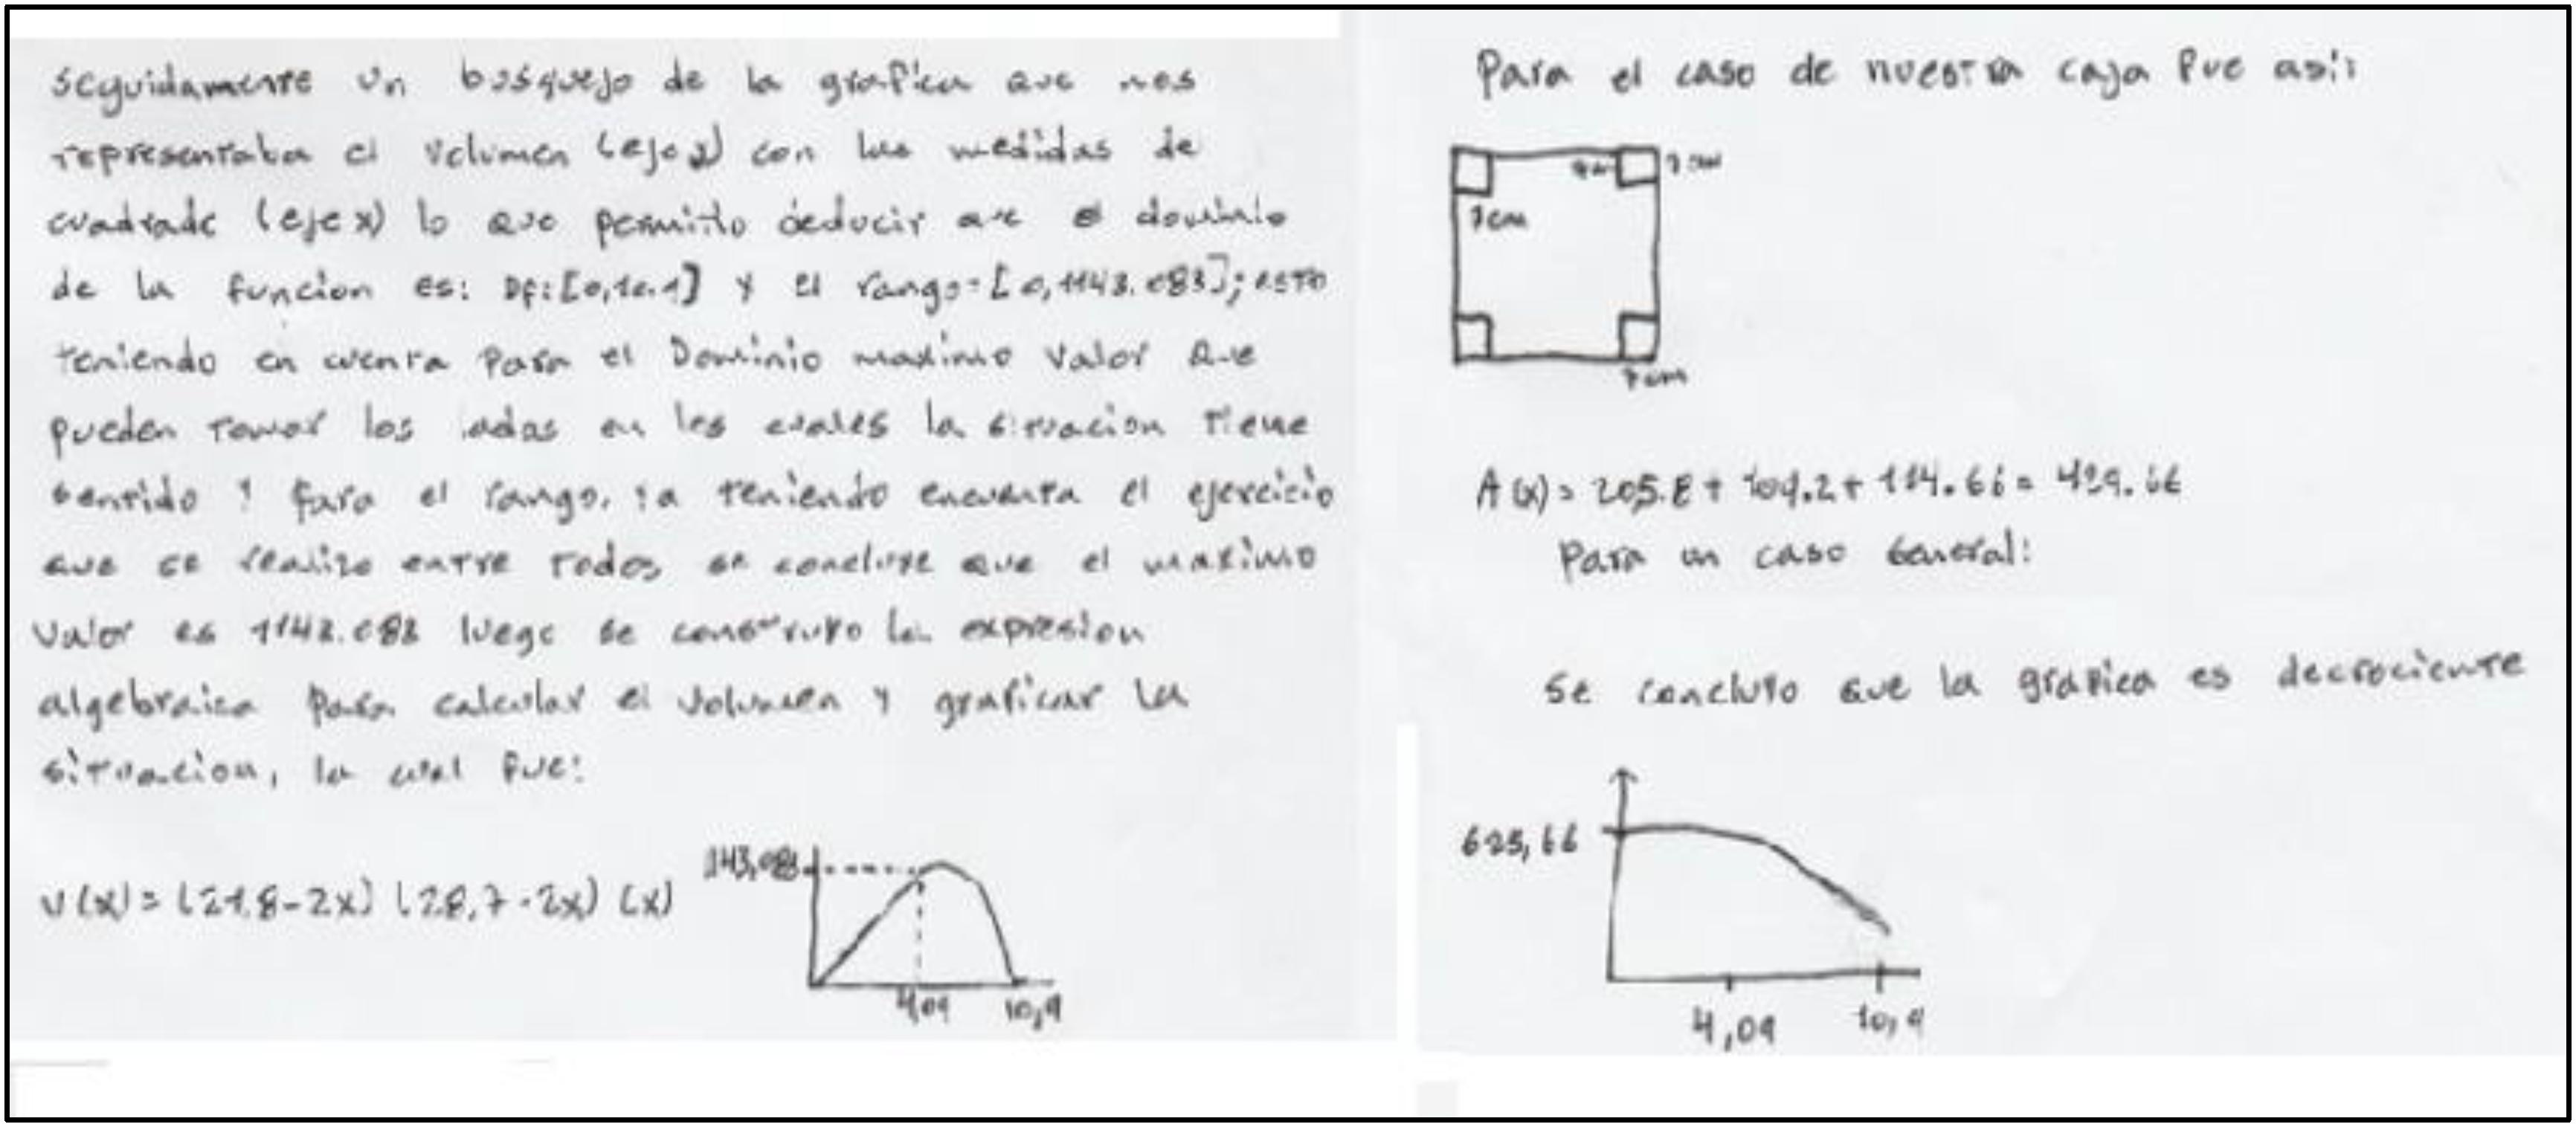 seguidamente un busquejo de la grafica que nos
representaba el volumen (eje y) con las medidas de
cuadrado (eje x) lo que permitio deducir que el dominio
de la funcion es: Df:[0,10.9] y el rango=[0,1143.083]; esto
teniendo en cuenta para el Dominio maximo valor que
pueden tomar los lados en los cuales la situacion tiene
sentido y para el rango, ya teniendo encuenta el ejercicio
que se realizo entre todos se concluye que el maximo
valor es 1143.083 luego se construyo la expresion
algebraica para calcular el volumen y graficar la
situacion, la cual fue:
V(x)= (21.8-2x) (28,7-2x) (x)
143,083
4,09 10,9
Para el caso de nuestra caja fue asi:
7cm
7cm
7cm
A(x)= 205.8+109.2+114.66= 429.66
Para un caso General:
se concluyo que la grafica es decreciente
625,66
4,09 10,9